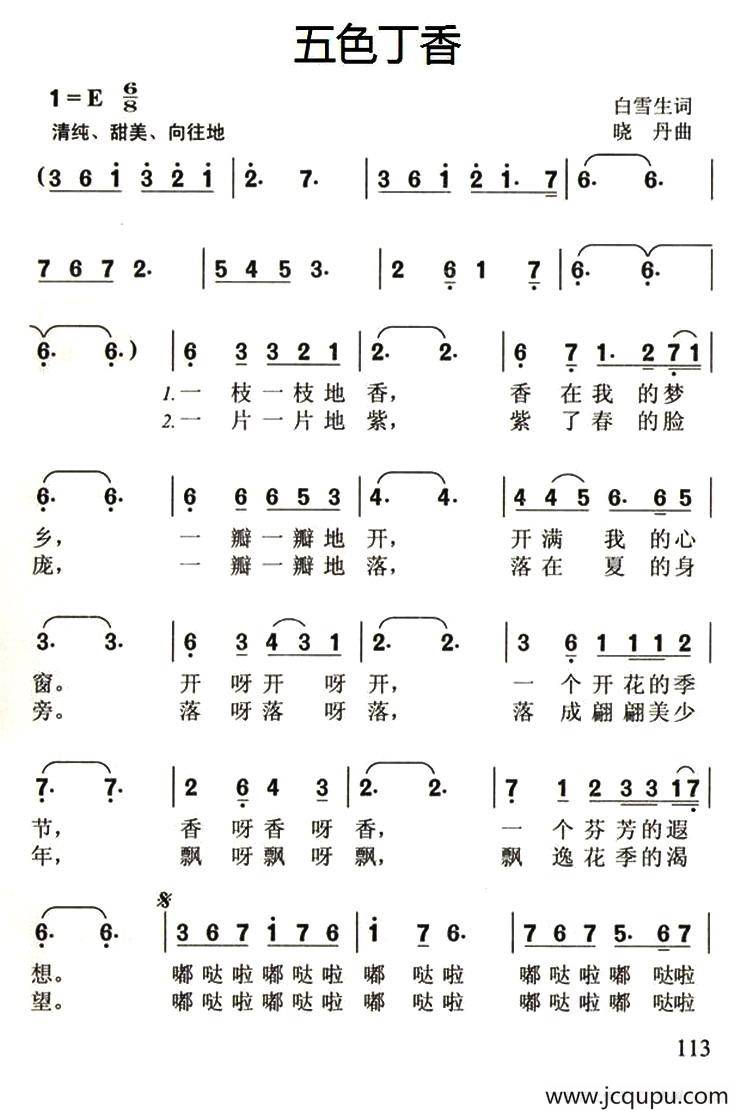 五色丁香
1=E 6/8
白雪生词
清纯、甜美、向往地
晓 丹曲
(3 6 1 3 2 1 | 2. 7. | 3 6 1 2 1. 7 | 6. 6. |
7 6 7 2. | 5 4 5 3. | 2 6 1 7 | 6. 6. |
6. 6.) | 6 3 3 2 1 | 2. 2. | 6 7 1. 2 7 1 |
1.一 枝 一 枝 地 香, 香 在 我 的 梦
2.一 片 一 片 地 紫, 紫 了 春 的 脸
6. 6. | 6 6 6 5 3 | 4. 4. | 4 4 5 6. 6 5 |
乡, 一 瓣 一 瓣 地 开, 开 满 我 的 心
庞, 一 瓣 一 瓣 地 落, 落 在 夏 的 身
3. 3. | 6 3 4 3 1 | 2. 2. | 3 6 1 1 1 2 |
窗。 开 呀 开 呀 开, 一 个 开 花 的 季
旁。 落 呀 落 呀 落, 落 成 翩 翩 美 少
7. 7. | 2 6 4 3 | 2. 2. | 7 1 2 3 3 1 7 |
节, 香 呀 香 呀 香, 一 个 芬 芳 的 遐
年, 飘 呀 飘 呀 飘, 飘 逸 花 季 的 渴
6. 6. | 3 6 7 1 7 6 | 1 7 6. | 7 6 7 5. 6 7 |
想。 嘟 哒 啦 嘟 哒 啦 嘟 哒 啦 嘟 哒 啦 嘟 哒 啦
望。 嘟 哒 啦 嘟 哒 啦 嘟 哒 啦 嘟 哒 啦 嘟 哒 啦
113
www.jcqupu.com